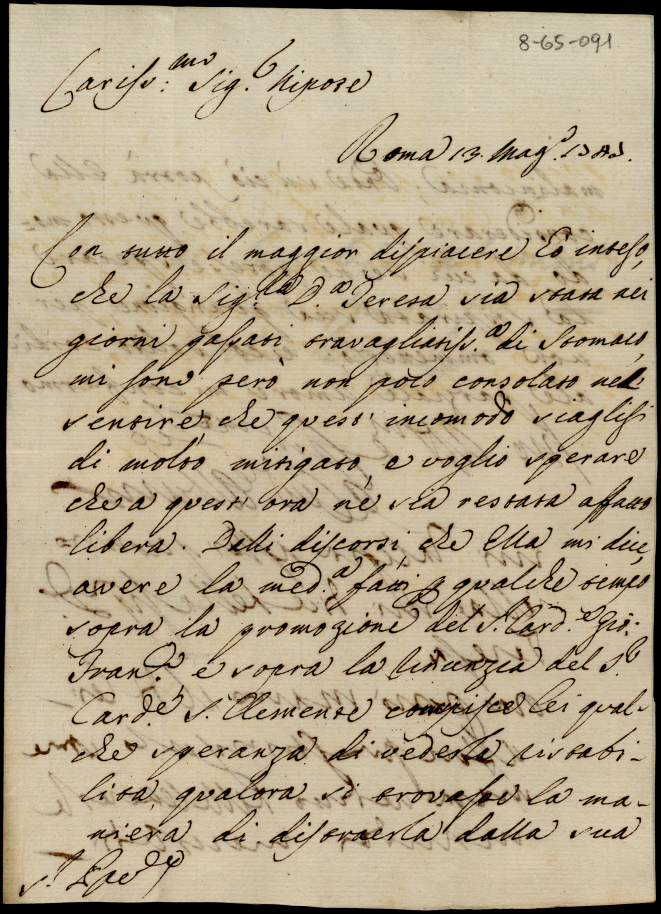 8-65-091
Cariss:mo Sig.r Nipote
Roma 13. Mag.o
Con tutto il maggior dispiacere hò inteso,
che la Sig.ra D.a Teresa sia stata nei
giorni passati travagliatiss.a di Stomaco,
mi sono però non poco consolato nel
sentire che quest' incomodo siaglisi
di molto mitigato e voglio sperare
che a quest' ora nè sia restata affatto
libera. Dalli discorsi, che Ella mi dice,
avere la med.a fatti p qualche tempo
sopra la promozione del S. Card.e Gio:
Fran.co e sopra la rinunzia del S.r
Card.e S. Clemente compisce lei qual-
che speranza di vederla ristabi-
lita, qualora si trovasse la ma-
niera di distraerla dalla sua